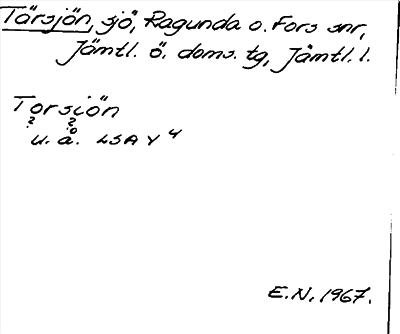 Tärsjön, sjö, Ragunda o. Fors snr,
Jämtl. ö. doms. tg, Jämtl. l.
Torsiön
? ?
u. å. LSA Y 4
E.N. 1967.